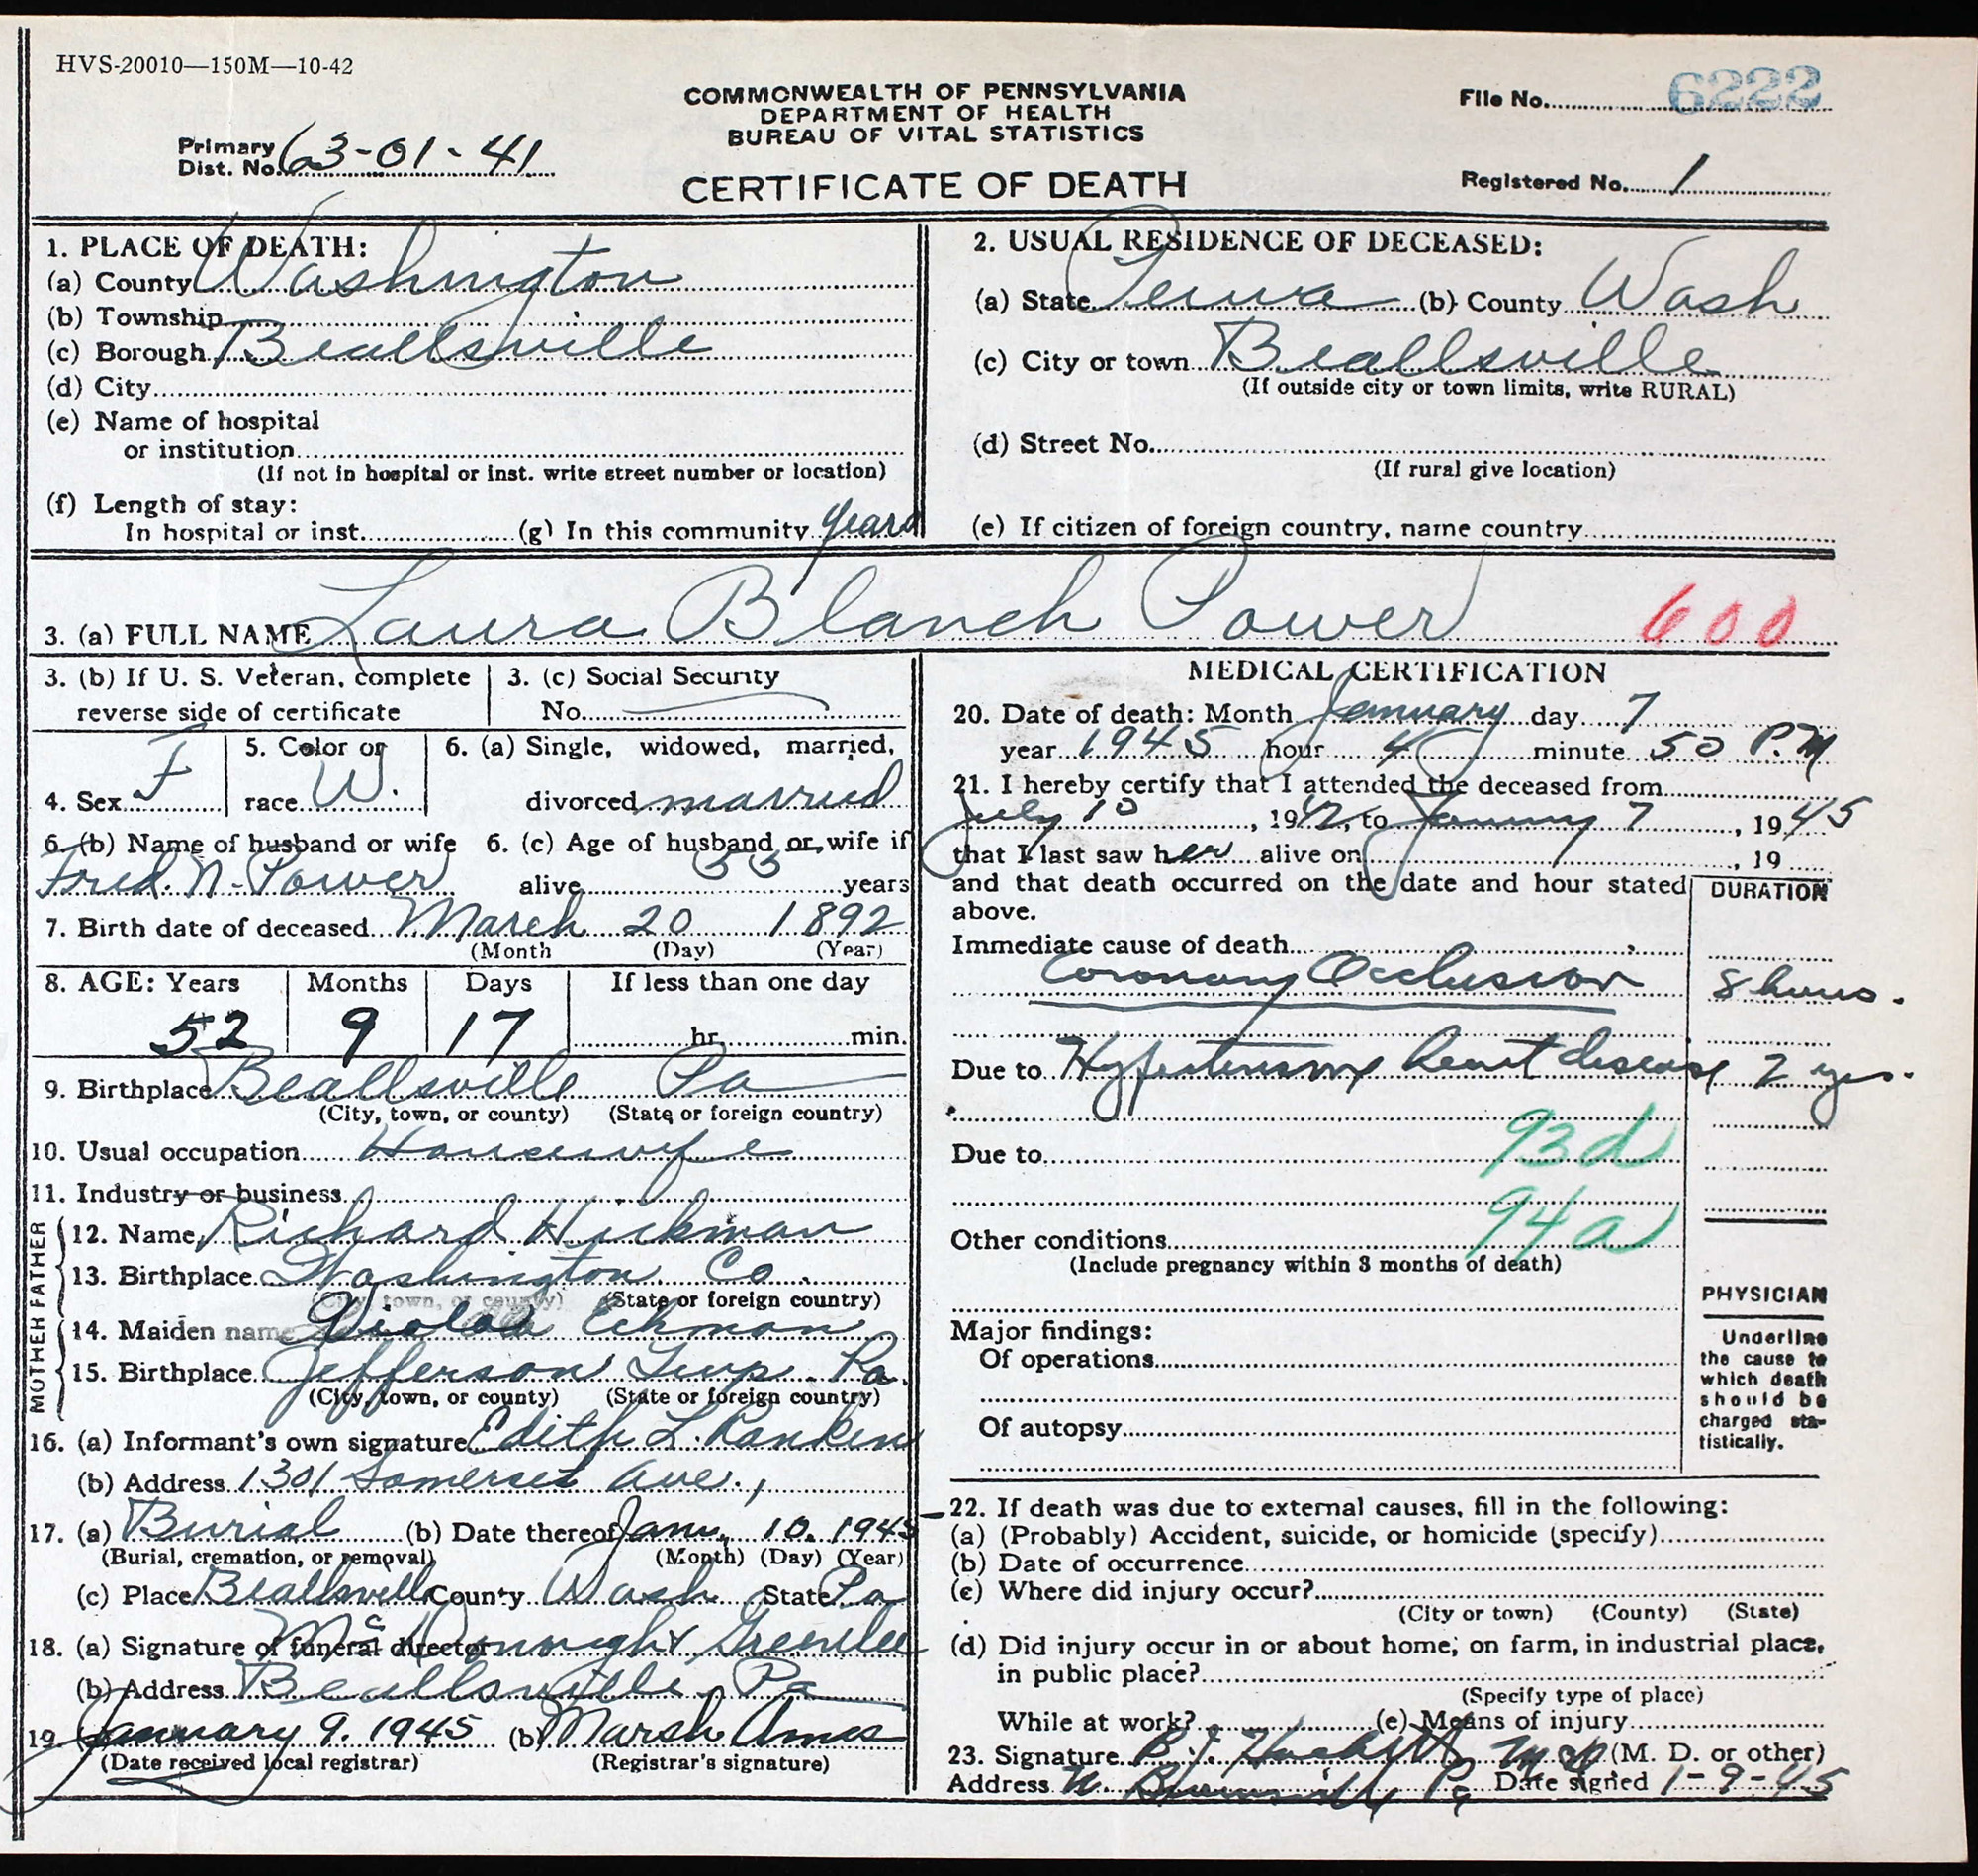 HVS-20010—150M—10-42
COMMONWEALTH OF PENNSYLVANIA
DEPARTMENT OF HEALTH
BUREAU OF VITAL STATISTICS
CERTIFICATE OF DEATH
File No. 6222
Primary Dist. No. 63-01-41
Registered No. 1
1. PLACE OF DEATH:
(a) County Washington
(b) Township
(c) Borough Beallsville
(d) City
(e) Name of hospital
or institution
(If not in hospital or inst. write street number or location)
(f) Length of stay:
In hospital or inst. (g) In this community years
2. USUAL RESIDENCE OF DECEASED:
(a) State Penna (b) County Wash
(c) City or town Beallsville
(If outside city or town limits, write RURAL)
(d) Street No.
(If rural give location)
(e) If citizen of foreign country, name country
3. (a) FULL NAME Laura Blanch Power 600
3. (b) If U. S. Veteran, complete
reverse side of certificate
3. (c) Social Security
No.
4. Sex F
5. Color or
race W.
6. (a) Single, widowed, married,
divorced married
6. (b) Name of husband or wife
Fred. N. Power
6. (c) Age of husband or wife if
alive 53 years
7. Birth date of deceased March 20 1892
(Month (Day) (Year)
8. AGE: Years Months Days If less than one day
52 9 17 hr. min.
9. Birthplace Beallsville Pa
(City, town, or county) (State or foreign country)
10. Usual occupation Housewife
11. Industry or business
FATHER
12. Name Richard Hickman
13. Birthplace Washington Co.
(City, town, or county) (State or foreign country)
MOTHER
14. Maiden name Viola Eckman
15. Birthplace Jefferson Twp. Pa.
(City, town, or county) (State or foreign country)
16. (a) Informant's own signature Edith L. Rankin
(b) Address 1301 Somerset Ave.,
17. (a) Burial (b) Date thereof Jan. 10. 1945
(Burial, cremation, or removal) (Month) (Day) (Year)
(c) Place Beallsville County Wash State Pa
18. (a) Signature of funeral director Greenlee
(b) Address Beallsville, Pa
19. January 9. 1945 (b) Marsh Ames
(Date received local registrar) (Registrar's signature)
MEDICAL CERTIFICATION
20. Date of death: Month January day 7
year 1945 hour 4 minute 50 P.M
21. I hereby certify that I attended the deceased from
July 10, 1942, to January 7, 1945
that I last saw her alive on , 19
and that death occurred on the date and hour stated
above.
DURATION
Immediate cause of death
Coronary Occlusion 8 hours.
Due to Hypertensive heart disease 2 yrs.
93d
Due to
94a
Other conditions
(Include pregnancy within 3 months of death)
Major findings:
Of operations
Of autopsy
PHYSICIAN
Underline
the cause to
which death
should be
charged sta-
tistically.
22. If death was due to external causes, fill in the following:
(a) (Probably) Accident, suicide, or homicide (specify)
(b) Date of occurrence
(c) Where did injury occur?
(City or town) (County) (State)
(d) Did injury occur in or about home, on farm, in industrial place,
in public place?
(Specify type of place)
While at work? (e) Means of injury
23. Signature (M. D. or other)
Address Pa Date signed 1-9-45